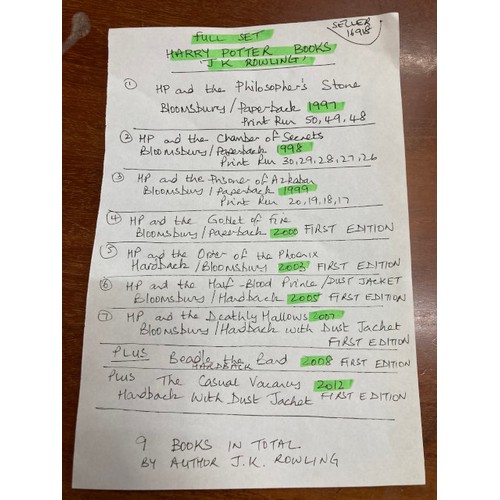 FULL SET
SELLER
16918
HARRY POTTER BOOKS
'J.K ROWLING'
① HP and the Philosopher's Stone
Bloomsbury/Paperback 1997
Print Run 50,49,48
② HP and the Chamber of Secrets
Bloomsbury/Paperback 998
Print Run 30,29,28,27,26
③ HP and the Prisoner of Azkaban
Bloomsbury/Paperback 1999
Print Run 20,19,18,17
④ HP and the Goblet of Fire
Bloomsbury/Paperback 2000 FIRST EDITION
⑤ HP and the Order of the Phoenix
Hardback/Bloomsbury 2003 FIRST EDITION
⑥ HP and the Half-Blood Prince/DUST JACKET
Bloomsbury/Hardback 2005 FIRST EDITION
⑦ HP and the Deathly Hallows 2007
Bloomsbury/Hardback with Dust Jacket
FIRST EDITION
PLUS Beadle the Bard 2008 FIRST EDITION
HARDBACK
Plus The Casual Vacancy 2012
Hardback With Dust Jacket FIRST EDITION
9 BOOKS IN TOTAL
BY AUTHOR J.K. ROWLING